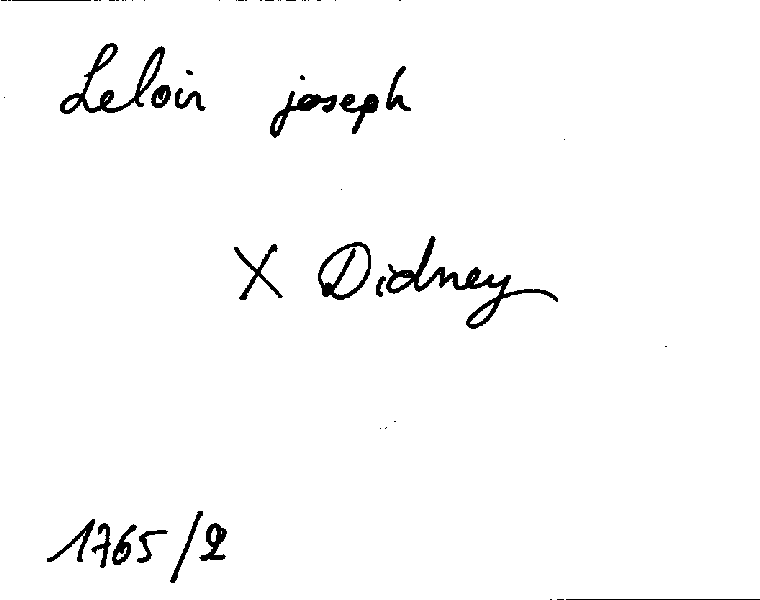 Leloir joseph
X Didney
1765/2